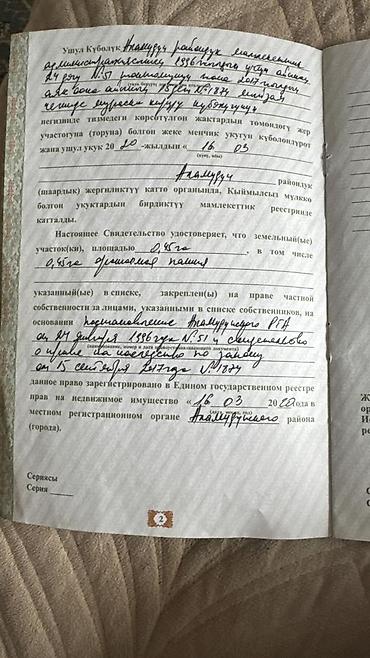 Ушул Күбөлүк Аламүдүн райондук мамлекеттик
администрациясынын 1996-жылдын үчүн айынын
24 дәгү №51 токтомунун жана 2017-жылдын
аяк оона айынын 15 дәги №1874 мыйзам
ченинде мураска кирүү күбөлүгүнүн
негизинде тизмедеги көрсөтүлгөн жактардын төмөндөгү жер
участогуна (торуна) болгон жеке менчик укугун күбөлөндүрөт
жана ушул укук 2020-жылдын « 16 03
(күнү, айы)
Аламүдүн райондук
(шаардык) жергиликтүү катто органында, Кыймылсыз мүлккө
болгон укуктардын бирдиктүү мамлекеттик реестринде
катталды.
Настоящее Свидетельство удостоверяет, что земельный(ые)
участок(ки), площадью 0,45га, в том числе
0,45га орошаемая пашня
указанный(ые) в списке, закреплен(ы) на праве частной
собственности за лицами, указанными в списке собственников, на
основании постановление Аламудунского РГА
от 24 января 1996 года №51 и свидетельство
(наименование, номер и дата
о праве на наследство по закону
от 15 сентября 2017 года №1874
данное право зарегистрировано в Едином государственном реестре
прав на недвижимое имущество « 16 03 2020 года в
местном регистрационном органе Аламудунского района
(города).
Сериясы
Серия
2